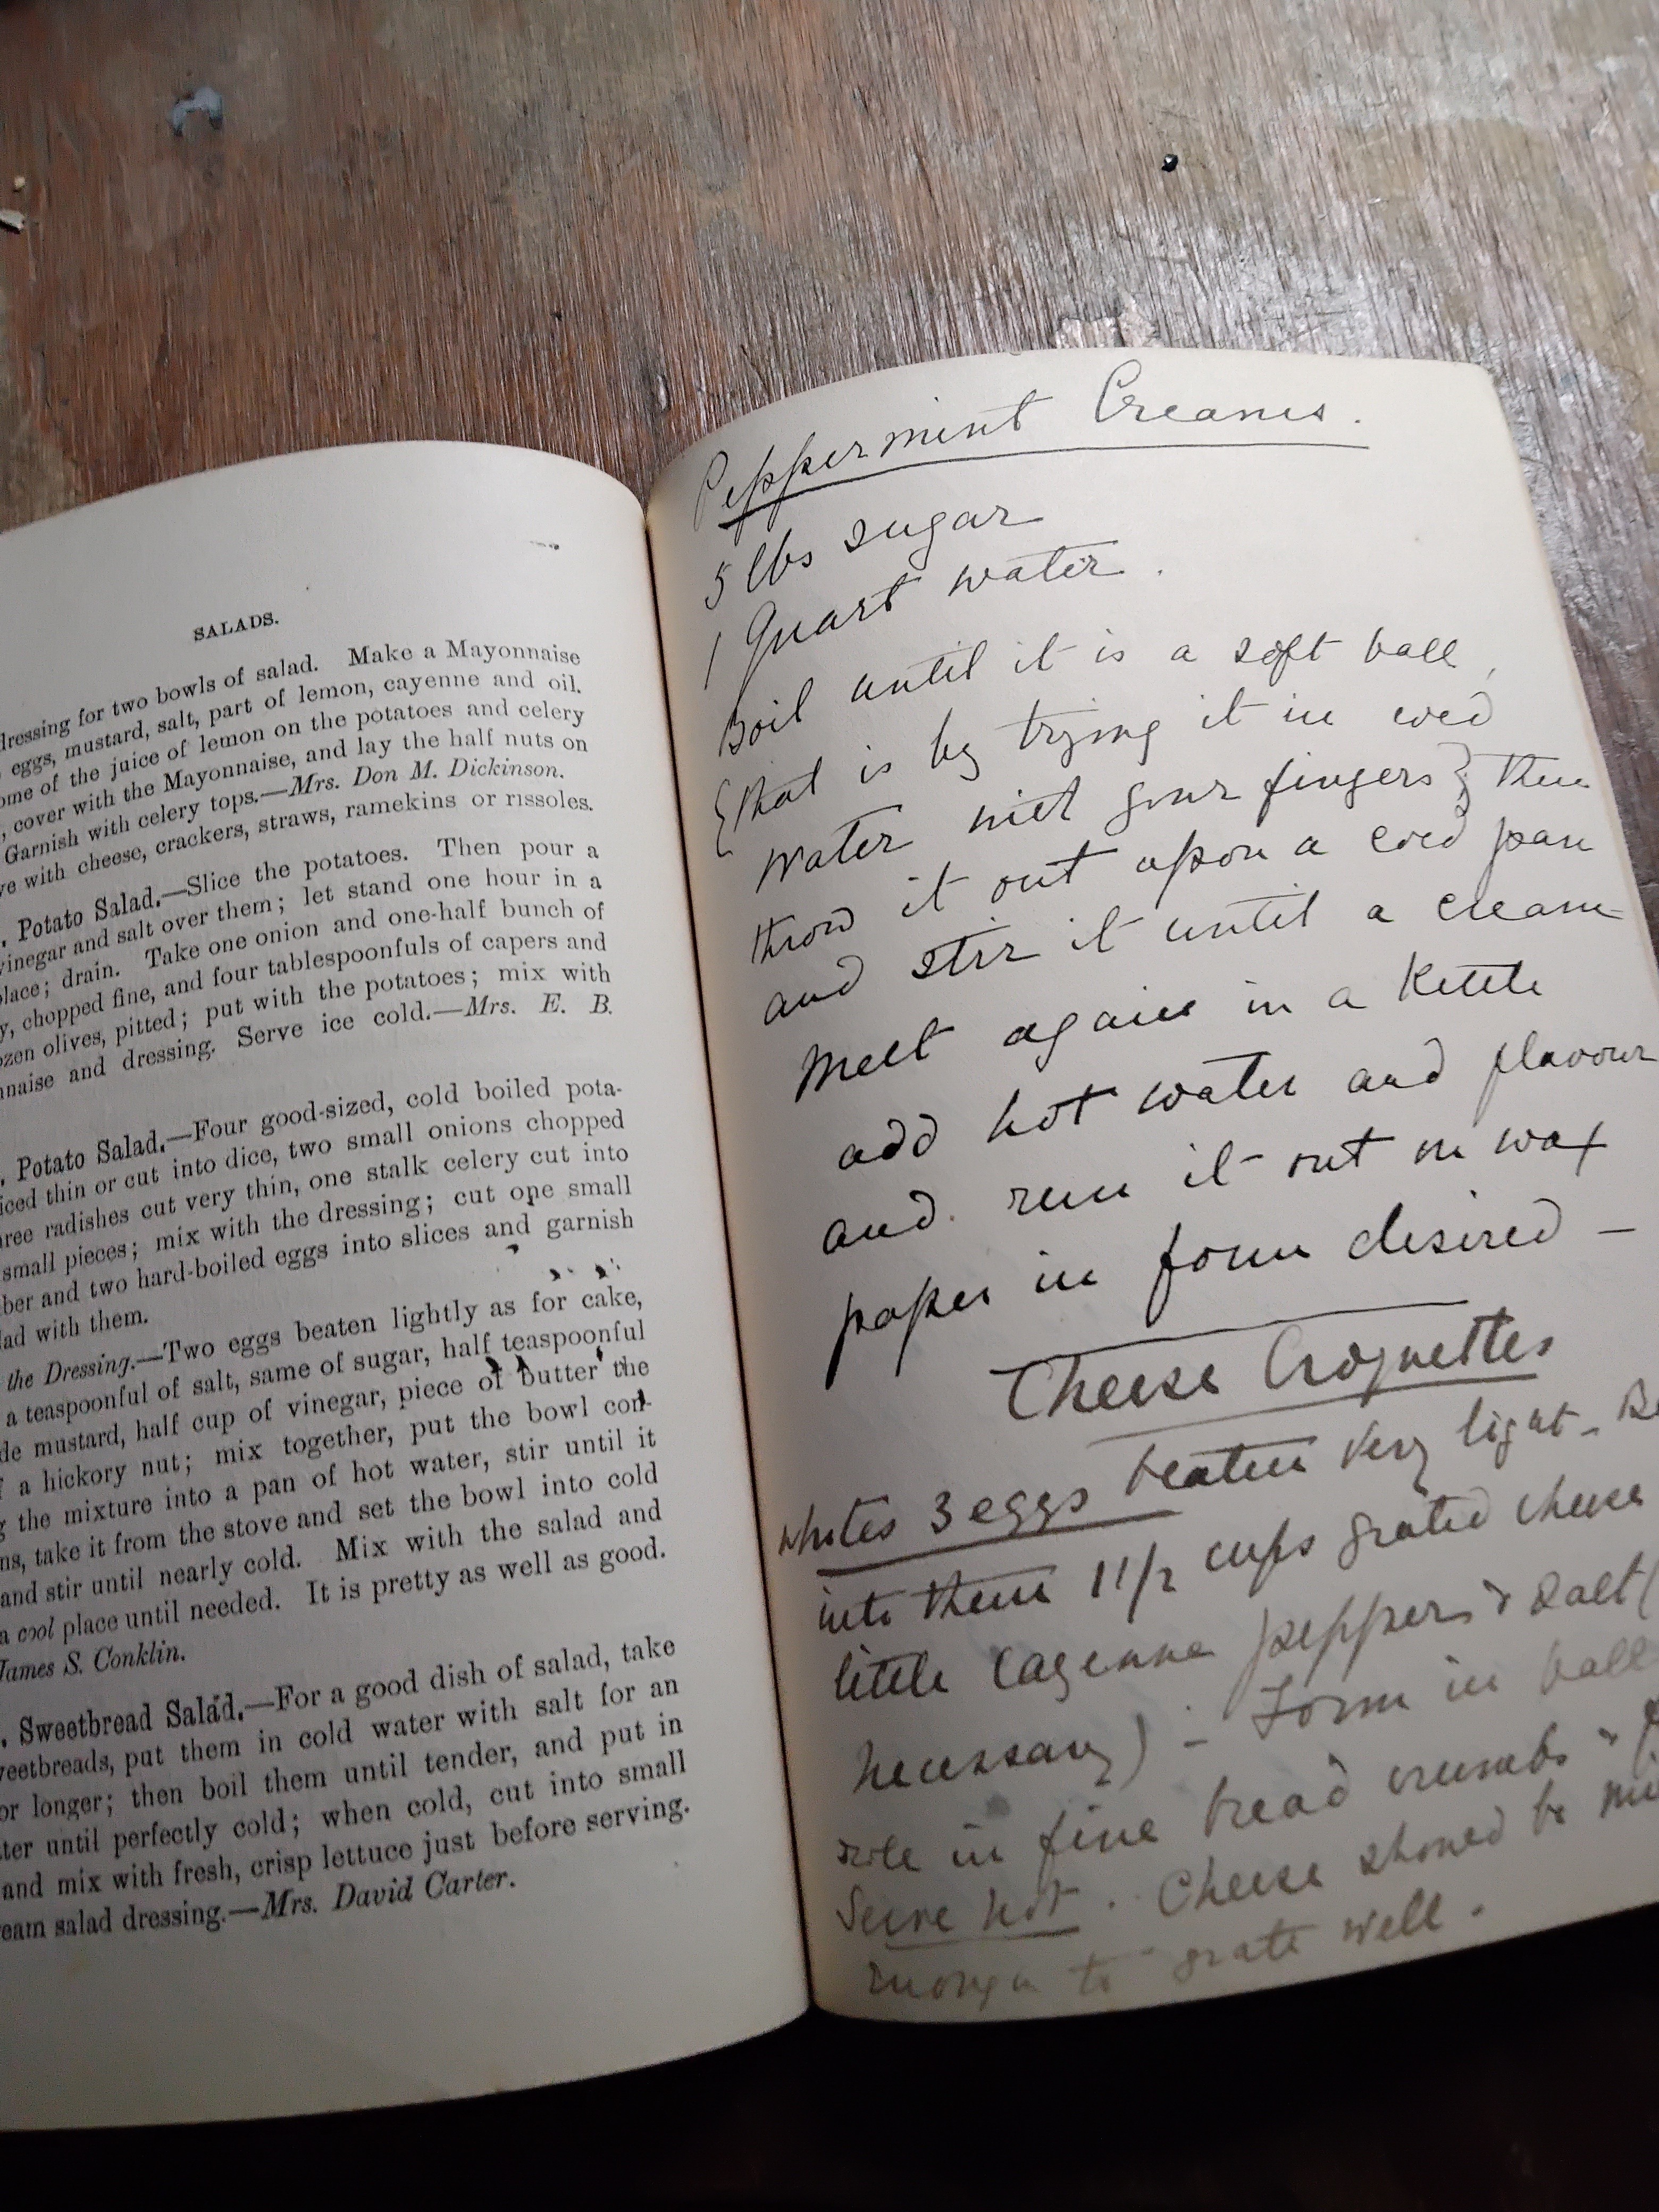 SALADS.
dressing for two bowls of salad. Make a Mayonnaise
eggs, mustard, salt, part of lemon, cayenne and oil.
ome of the juice of lemon on the potatoes and celery
, cover with the Mayonnaise, and lay the half nuts on
Garnish with celery tops.—Mrs. Don M. Dickinson.
ve with cheese, crackers, straws, ramekins or rissoles.
. Potato Salad.—Slice the potatoes. Then pour a
vinegar and salt over them; let stand one hour in a
place; drain. Take one onion and one-half bunch of
y, chopped fine, and four tablespoonfuls of capers and
ozen olives, pitted; put with the potatoes; mix with
nnaise and dressing. Serve ice cold.—Mrs. E. B.
. Potato Salad.—Four good-sized, cold boiled pota-
iced thin or cut into dice, two small onions chopped
ree radishes cut very thin, one stalk celery cut into
small pieces; mix with the dressing; cut one small
ber and two hard-boiled eggs into slices and garnish
lad with them.
the Dressing.—Two eggs beaten lightly as for cake,
a teaspoonful of salt, same of sugar, half teaspoonful
de mustard, half cup of vinegar, piece of butter the
f a hickory nut; mix together, put the bowl con-
g the mixture into a pan of hot water, stir until it
ns, take it from the stove and set the bowl into cold
and stir until nearly cold. Mix with the salad and
a cool place until needed. It is pretty as well as good.
James S. Conklin.
. Sweetbread Salad.—For a good dish of salad, take
weetbreads, put them in cold water with salt for an
or longer; then boil them until tender, and put in
ter until perfectly cold; when cold, cut into small
and mix with fresh, crisp lettuce just before serving.
ream salad dressing.—Mrs. David Carter.
Peppermint Creams.
5 lbs sugar
1 Quart water.
Boil until it is a soft ball,
{that is by trying it in cold
water with your fingers} then
throw it out upon a cold pan
and stir it until a cream
Melt again in a Kettle
add hot water and flavour
and run it out on wax
paper in form desired –
Cheese Croquettes
Whites 3 eggs beaten very light – Be
into them 1 1/2 cups grated cheese
little cayenne pepper & salt (
necessary) – Form in ball
role in fine bread crumbs
Serve hot. Cheese should be
enough to grate well.